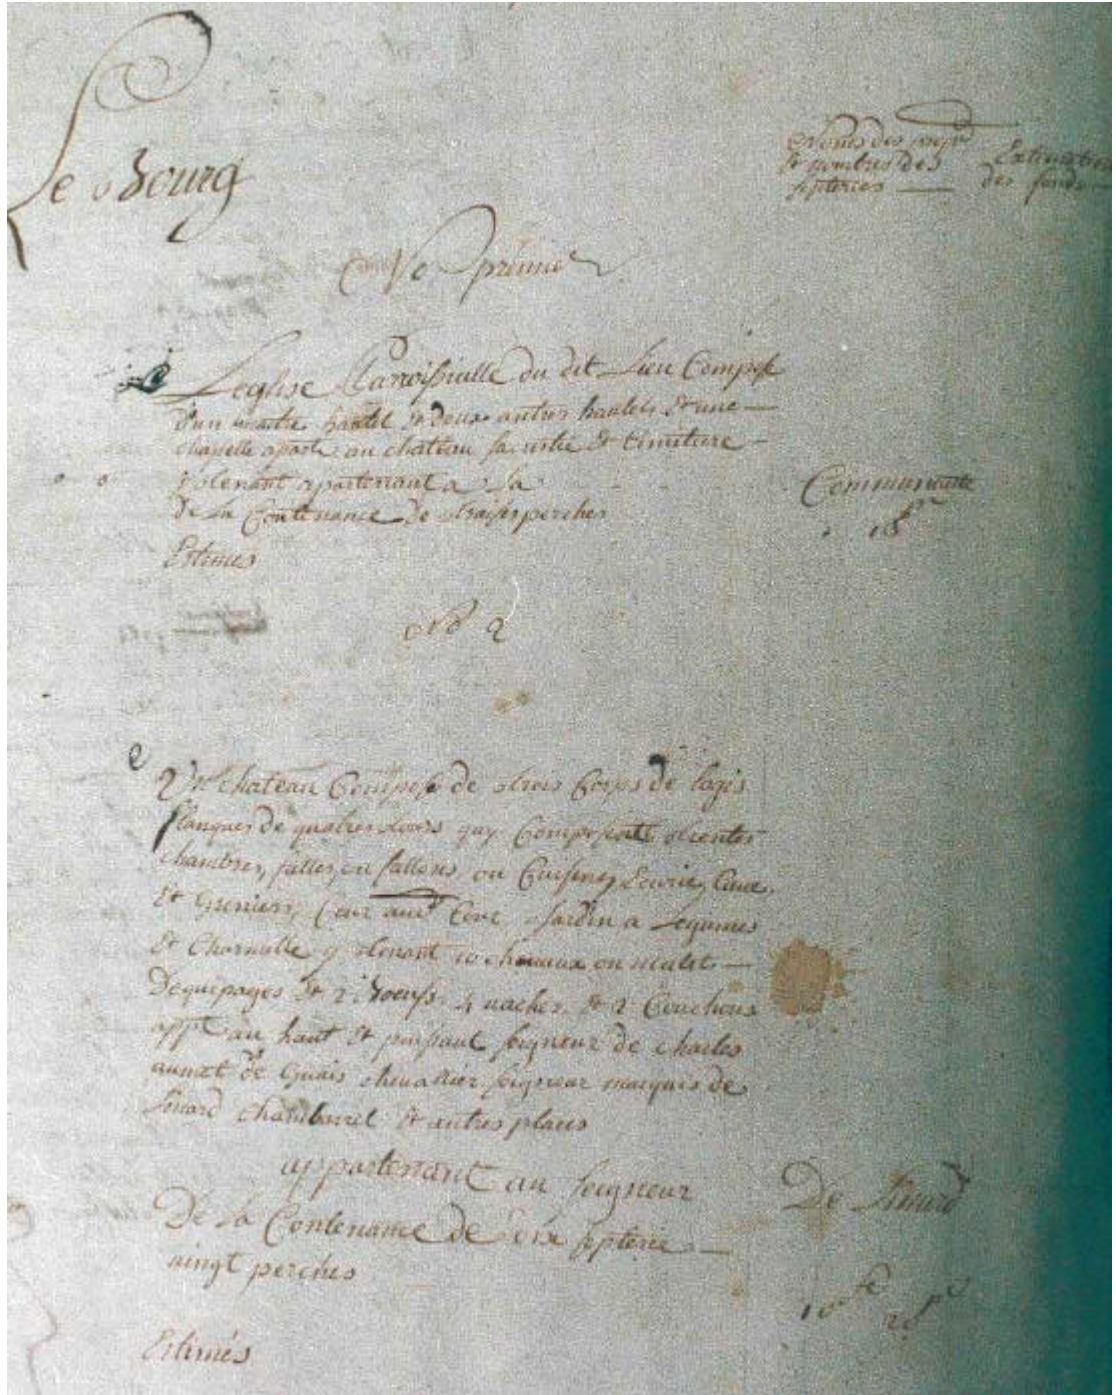 Le Bourg
Noms des propre
et nombres des
septeries — Estimation
des fonds
No premier
Leglise Parroissialle du dit Lieu Compose
d'un maitre hautel et deux autres hautels et une —
chapelle aparte au chateau sacristie et cimitiere —
y tenant apartenant a la
Communauté
de la Contenance de
perches
Estimes
No 2
2 Un chateau Composé de trois Corps de logis
flanques de quatres tours quy Composent trentes
chambres, salles, ou sallons ou Cuisines, Ecurie, Cave,
et Greniers, Cour Jardin a Legumes
et Charmille y tenant 10 chevaux ou mulet —
Dequipages et 2 Boeufs. 4 vaches. & 2 Couchons
appt au haut et puissant seigneur de charles
de Guais chevallier seigneur marquis de
Linard chambarret et autres places
appartenant au seigneur
De Linard
De la Contenance de Dix septerie —
vingt perches
10 se 20 p
Estimés